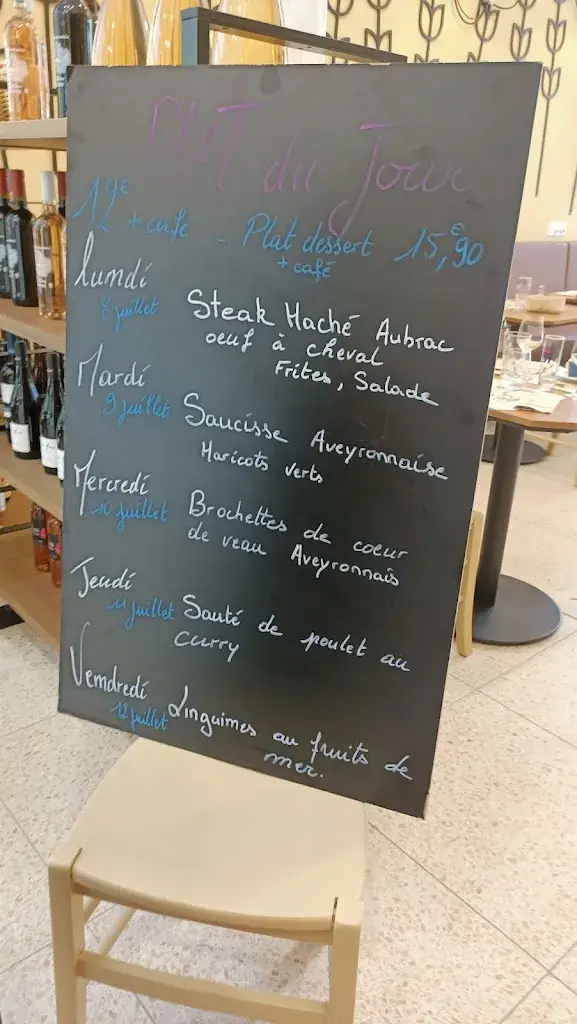 PLAT du Jour
12€ + café - Plat dessert 15,€90
+ café
Lundi
8 juillet
Steak Haché Aubrac
oeuf à cheval
Frites, Salade
Mardi
9 juillet
Saucisse Aveyronnaise
Haricots verts
Mercredi
10 juillet
Brochettes de coeur
de veau Aveyronnais
Jeudi
11 juillet
Sauté de poulet au
curry
Vemdredi
12 juillet
Linguimes au fruits de
mer.